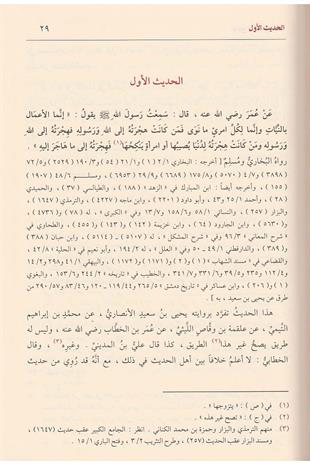 الحديث الأول ٢٩
الحديث الأول
عَنْ عُمَرَ رضي الله عنه ، قال : سَمِعْتُ رَسولَ اللهِ ﷺ يقولُ : « إنَّما الأعمَال
بالنِّيَّاتِ وإنَّما لِكُلِّ امرئٍ ما نَوَى فَمَن كانَتْ هِجْرَتُهُ إلى اللهِ ورَسُولِهِ فهِجْرَتُهُ إلى اللهِ
ورَسُولِهِ ومَنْ كانَتْ هِجْرَتُهُ لِدُنْيَا يُصِيبُها أو امرأةٍ يَنْكِحُهَا(١) فهِجْرَتُهُ إلى ما هَاجَرَ إليهِ » .
رواهُ البُخَاريُّ ومُسلِمٌ [ أخرجه : البخاري ٢/١ ( ١ ) و٢١/١ ( ٥٤ ) و١٩٠/٣ ( ٢٥٢٩ ) و٧٢/٥
( ٣٨٩٨ ) و٤/٧ ( ٥٠٧٠ ) و١٧٥/٨ ( ٦٦٨٩ ) و٢٩/٩ ( ٦٩٥٣ ) ، ومسلم ٤٨/٦ ( ١٩٠٧ )
( ١٥٥ ) ، وأخرجه أيضاً : ابن المبارك في « الزهد » ( ١٨٨ ) ، والطيالسي ( ٣٧ ) ، والحميدي
( ٢٨ ) ، وأحمد ٢٥/١ و٤٣ ، وأبو داود ( ٢٢٠١ ) ، وابن ماجه ( ٤٢٢٧ ) ، والترمذي ( ١٦٤٧ ) ،
والبزار ( ٢٥٧ ) ، والنسائي ٥٨/١ و١٥٨/٦ و١٣/٧ وفي « الكبرى » ، له ( ٧٨ ) و( ٤٧٣٦ )
و( ٥٦٣٠ ) ، وابن الجارود ( ٦٤ ) ، وابن خزيمة ( ١٤٢ ) و( ١٤٣ ) و( ٤٥٥ ) ، والطحاوي في
« شرح المعاني » ٩٦/٣ وفي « شرح المشكل » ، له ( ٥١٠٧ ) - ( ٥١١٤ ) ، وابن حبان ( ٣٨٨ )
و( ٣٨٩ ) ، والدارقطني ٤٩/١ - ٥٠ وفي « العلل » ، له ١٩٤/٢ ، وأبو نعيم في « الحلية » ٤٢/٨ ،
والقضاعي في « مسند الشهاب » ( ١ ) و( ٢ ) و( ١١٧١ ) و( ١١٧٢ ) ، والبيهقي ٤١/١ و٢٩٨ و١٤/٢
و١١٢/٤ و٢٣٥ و٣٩/٥ و٣٣١/٦ و٣٤١/٧ ، والخطيب في « تاريخه » ٢٤٤/٤ و١٥٣/٦ ، والبغوي
( ١ ) و( ٢٠٦ ) ، وابن عساكر في
طرق عن يحيى بن سعيد ، به ] .
هذا الحديثُ تفرَّد بروايته يحيى بنُ سعيدٍ الأنصاريُّ ، عن محمَّدِ بن إبراهيم
التَّيميِّ ، عن علقمة بن وقَّاصٍ اللَّيثيِّ ، عن عُمَر بن الخطَّاب رضي الله عنه ، وليس له
طريق يصحُّ غير هذا(٢) الطريق ، كذا قال عليُّ بنُ المدينيِّ . وغيرُه(٣) ، وقال
الخطابيُّ : لا أعلمُ خلافاً بين أهل الحديث في ذلك ، مع أنَّه قد رُوِيَ من حديث
(١) في ( ص ) : « يتزوجها » .
(٢) في ( ج ) : « تصح غير هذه » .
(٣) منهم الترمذي والبزار وحمزة بن محمد الكناني . انظر : الجامع الكبير عقب حديث ( ١٦٤٧ ) ،
ومسند البزار عقب الحديث ( ٢٥٧ ) ، وطرح التثريب ٣/٢ ، وفتح الباري ١٥/١ .